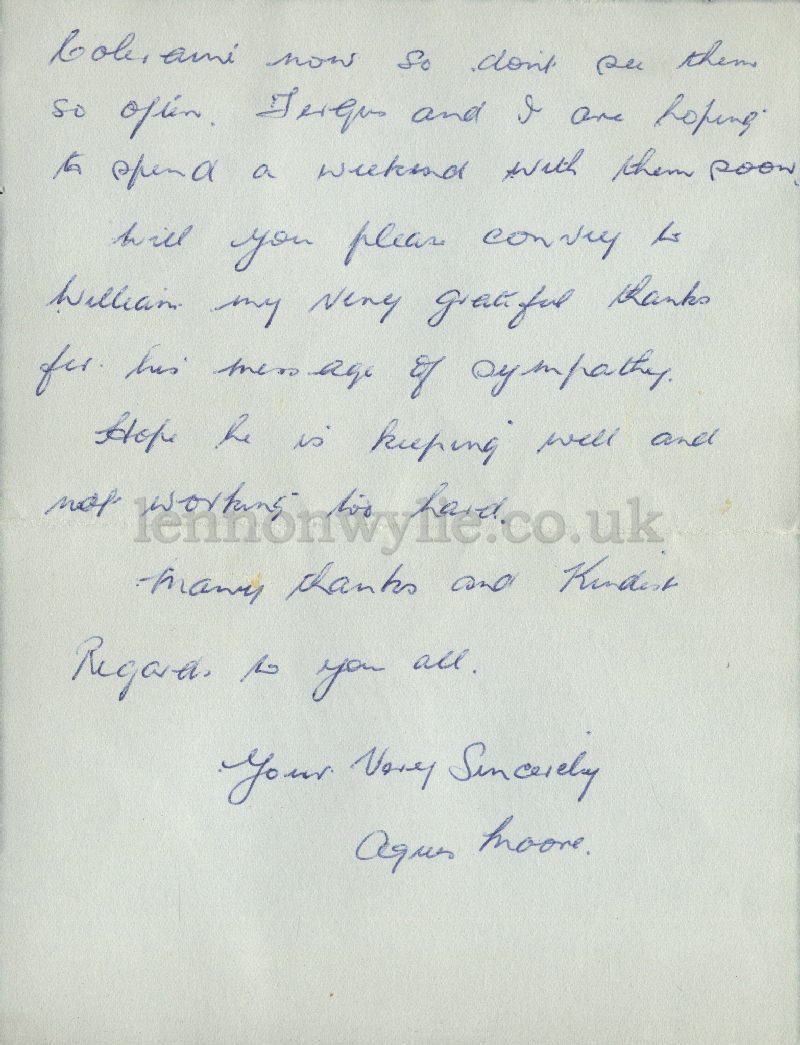 Coleraine now so don't see them
so often. Fergus and I are hoping
to spend a weekend with them soon.
Will you please convey to
William my very grateful thanks
for his message of sympathy.
Hope he is keeping well and
not working too hard.
lennonwylie.co.uk
Many thanks and Kindest
Regards to you all.
Your Very Sincerely
Agnes Moore.